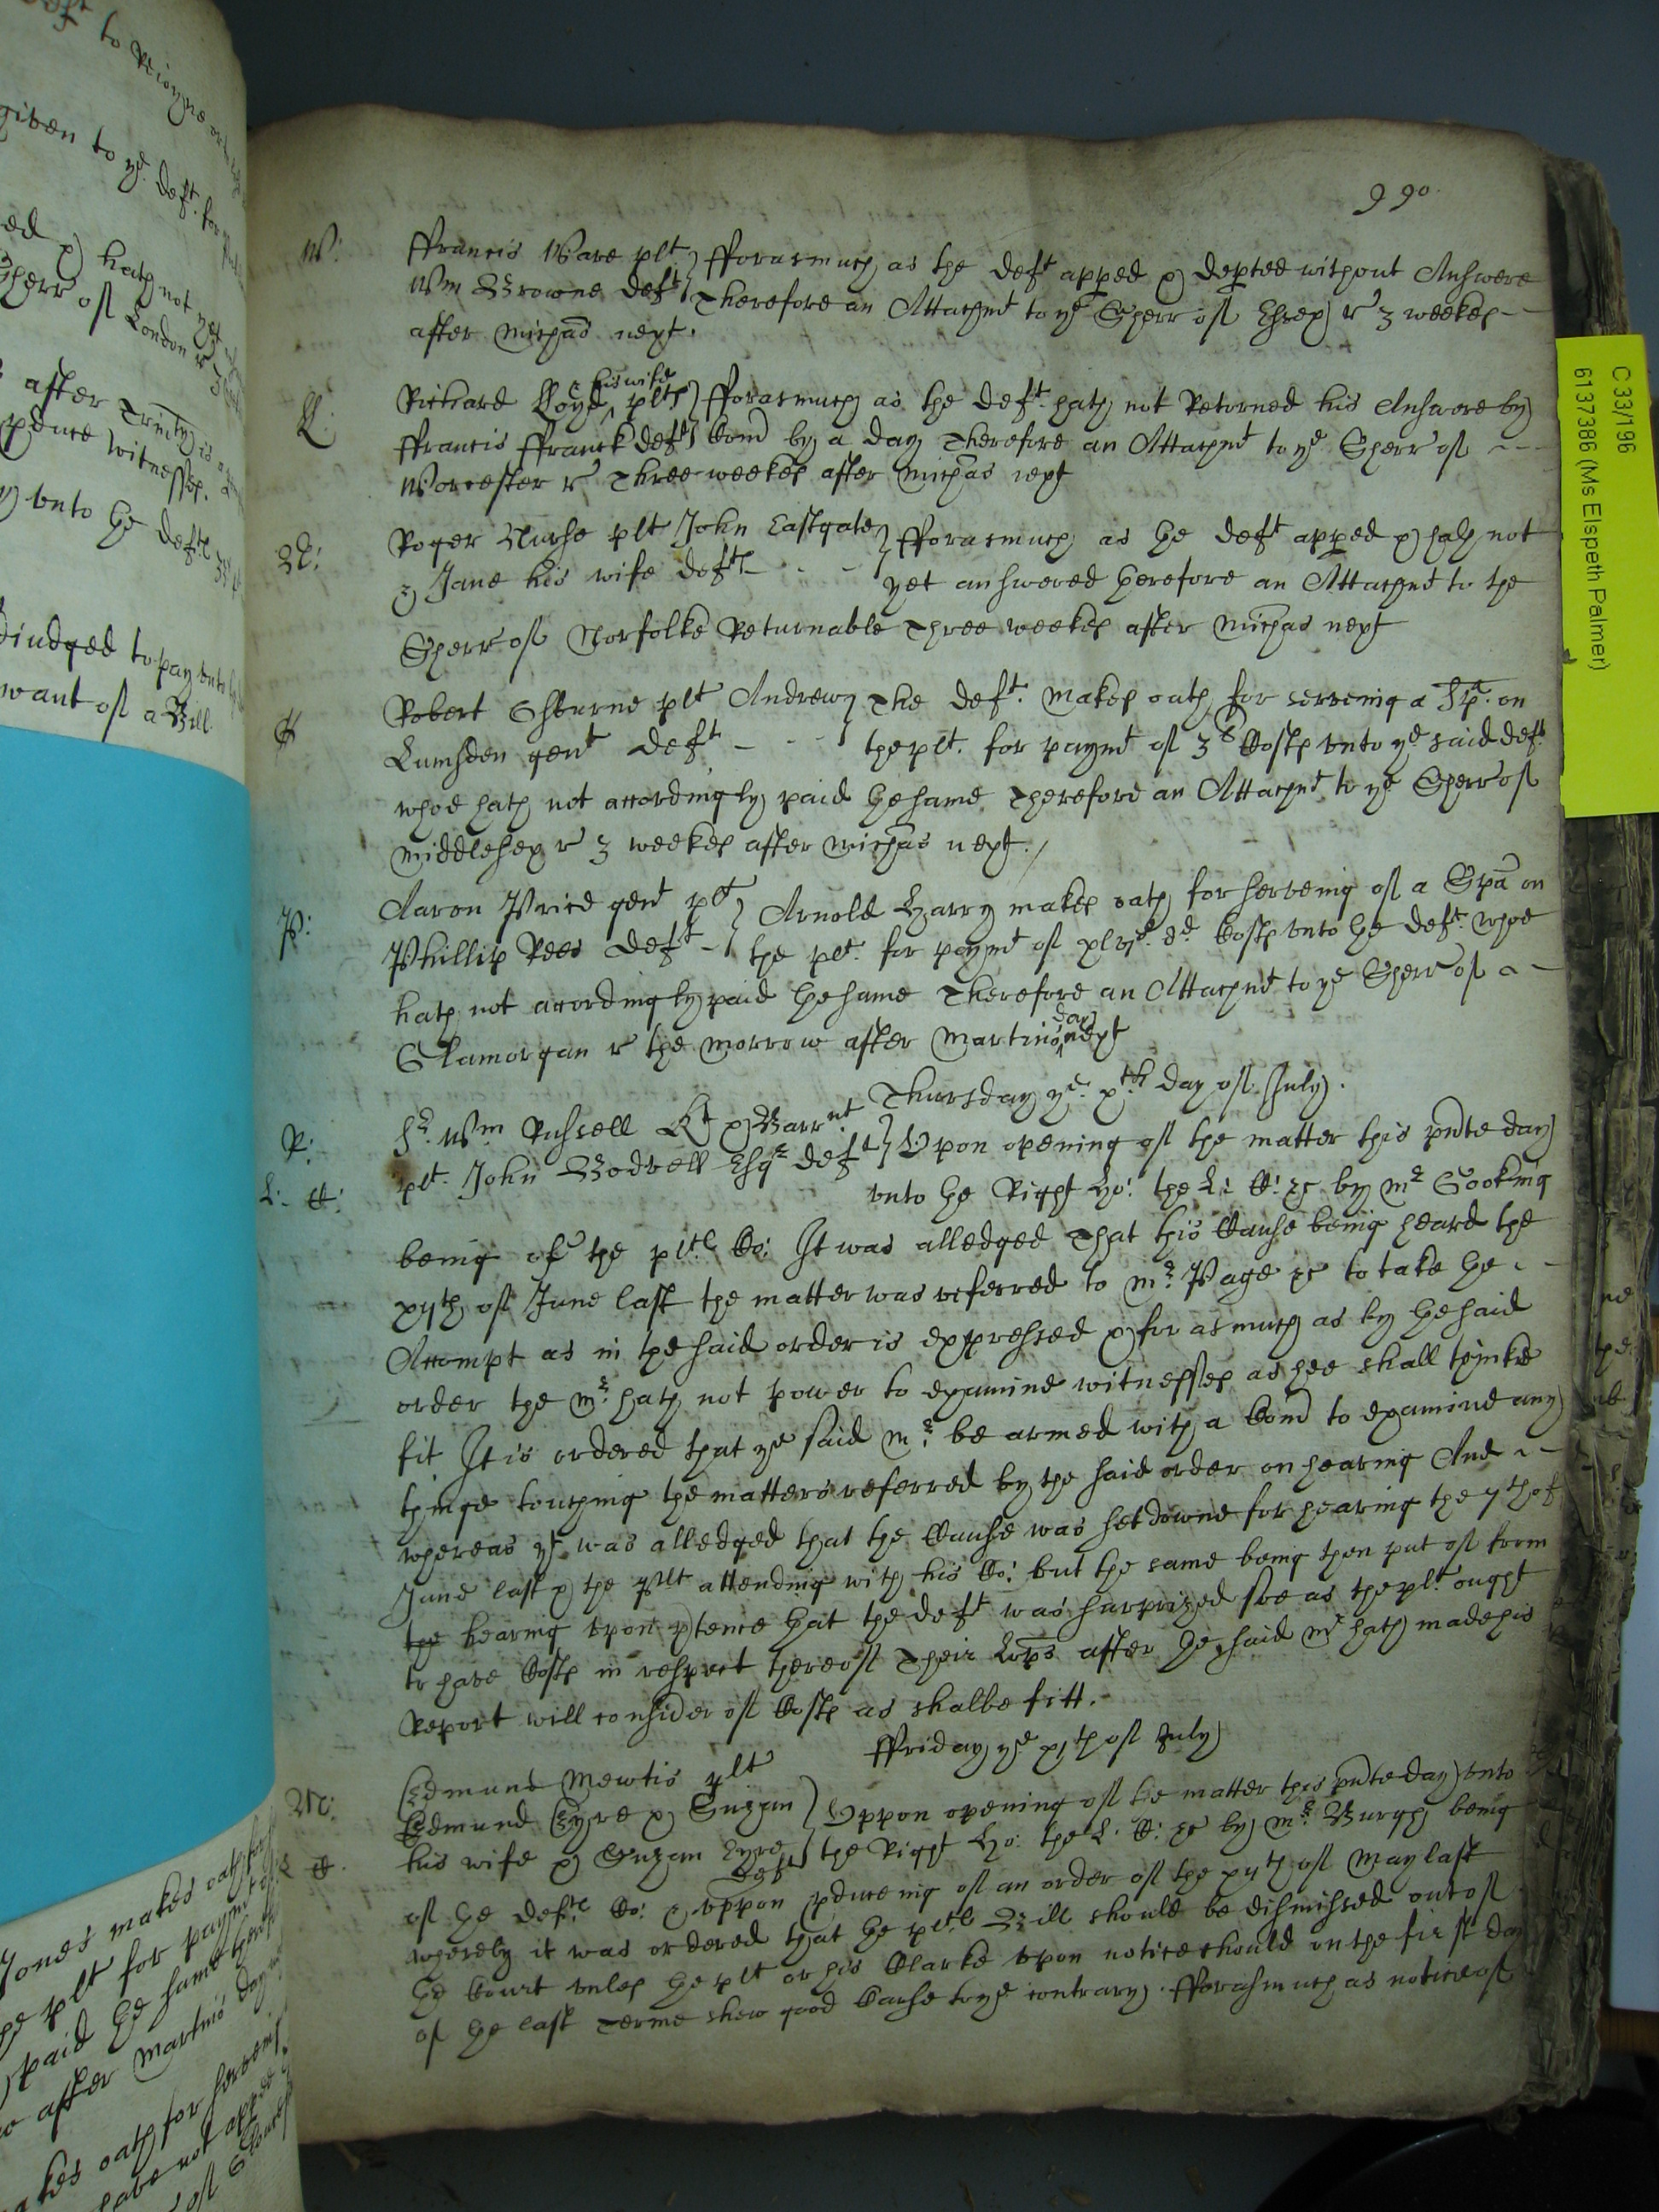 990
W: ffrancis Ware plt } fforasmuch as the deft apped & depted without Answere
Wm Browne deft } Therefore an Attachmt to ye Sherr of Essex r 3 weekes
after Michas next.
Ll: Richard Lloyd & his wife plts } fforasmuch as the deft hath not Retorned his Answere by
ffrancis ffranck deft } Comn by a day Therefore an Attachmt to ye Sherr of
Worcester r Three weekes after Michas next
N: Roger Nurse plt John Eastgate } fforasmuch as the deft apped & hath not
& Jane his wife defts yet answered therefore an Attachmt to the
Sherr of Norfolke Returnable Three weekes after Michas next
Robert plt Andrew } The deft. makes oath for serveing a Sp. on
Lumsden gent deft the plt. for paymt of Costs unto ye said deft
whoe hath not accordingly paid the same Therefore an Attachmt to ye Sherr of
Middlesex r 3 weekes after Michas next.
P: Aaron Price gent plt } Arnold Harry makes oath for serveing of a Spa on
Phillip Rees deft } the plt. for paymt of Costs unto the deft. whoe
hath not accordingly paid the same Therefore an Attachmt to ye Sherr of
Glamorgan r the morrow after Martins day next
Thursday ye xth day of July.
R: Sr. Wm Russell Kt & Barrnt
L: C: plt. John Bodvell Esqr deft } Upon opening of the matter this pnte day
unto the Right Ho: the L: C: &c by Mr Gooking
being of the plts Co: It was alledged That this Cause being heard the
of June last the matter was referred to Mr. Page &c to take the
Accompt as in the said order is expressed & for as much as by the said
order the Mr. hath not power to examine witnesses as hee shall thinke
fit It is ordered that ye said Mr. be armed with a Comn to examine any
thinge touching the matters referred by the said order on hearing And
whereas yt was alledged that the Cause was set downe for hearing the 7th of
June last & the Plt attending with his Co: but the same being then put of from
the hearing upon ptence that the deft was surprized soe as the plt. ought
to have Costs in respect thereof Their Lops after the said Mr hath made his
Report will consider of Costs as shalbe fitt.
ffriday ye xjth of July
M: Edmund Mewtis plt
Edmund Eyre & Suzan } Uppon opening of the matter this pnte day unto
L C. his wife & Suzan Eyre defts } the Right Ho: the L: C: &c by Mr. Burgh being
of the defts Co: & uppon pduceing of an order of the of May last
whereby it was ordered that the plts Bill should be dismissed out of
the Court unles the plt or his Clarke upon notice should on the first day
of the last Terme shew good Cause to ye contrary. fforasmuch as notice of
C 33/196
6137386 (Ms Elspeth Palmer)
given to ye deft. for
hath not yet
Sherr of London r
after Trinity is
pduce witnesses.
unto the defts
adiudged to pay unto
want of a Bill
Jones makes oath for
the plt for paymt of
paid the same there
after Martins day
makes oath for serveing
have not apped